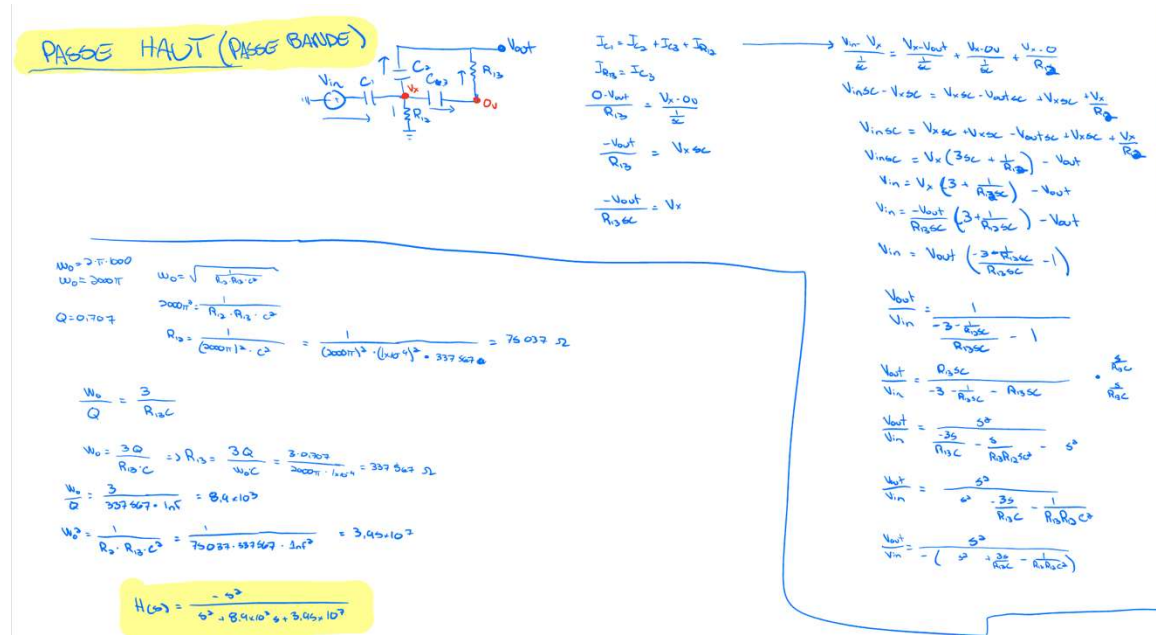 PASSE HAUT (PASSE BANDE)
Vout
Vin C1 C2 R13
Vx 0v
R12
I_C1 = I_C2 + I_C3 + I_R12
I_R13 = I_C3
(0-Vout)/R13 = (Vx-0v)/(1/sc)
-Vout/R13 = Vx sc
-Vout/(R13sc) = Vx
(Vin-Vx)/(1/sc) = (Vx-Vout)/(1/sc) + (Vx-0v)/(1/sc) + (Vx-0)/R12
Vinsc - Vxsc = Vxsc - Voutsc + Vxsc + Vx/R12
Vinsc = Vxsc + Vxsc - Voutsc + Vxsc + Vx/R12
Vinsc = Vx (3sc + 1/R12) - Vout
Vin = Vx (3 + 1/(R12sc)) - Vout
Vin = -Vout/(R13sc) (3 + 1/(R12sc)) - Vout
Vin = Vout ((-3 - 1/(R12sc))/(R13sc) - 1)
Vout/Vin = 1/((-3 - 1/(R12sc))/(R13sc) - 1)
Vout/Vin = R13sc/(-3 - 1/(R12sc) - R13sc) • (s/(R13c))/(s/(R13c))
Vout/Vin = s²/(-3s/(R13c) - s/(R13R12sc²) - s²)
Vout/Vin = s²/(s² -3s/(R13c) - 1/(R13R12c²))
Vout/Vin = s²/(-(s² + 3s/(R13c) - 1/(R13R12c²)))
W0 = 2·π·1000
W0 = 2000π
Q = 0,707
W0 = √(1/(R12·R13·c²))
2000π² = 1/(R12·R13·c²)
R12 = 1/((2000π)²·c²) = 1/((2000π)²·(1x10⁻⁹)²·337567) = 75037 Ω
W0/Q = 3/(R13C)
W0 = 3Q/(R13·C) => R13 = 3Q/(W0C) = 3·0,707/(2000π·1x10⁻⁹) = 337567 Ω
W0/Q = 3/(337567·1nf) = 8,9x10³
W0² = 1/(R2·R13·c²) = 1/(75037·337567·1nf²) = 3,95x10⁷
H(s) = -s²/(s² + 8,9x10³s + 3,95x10⁷)